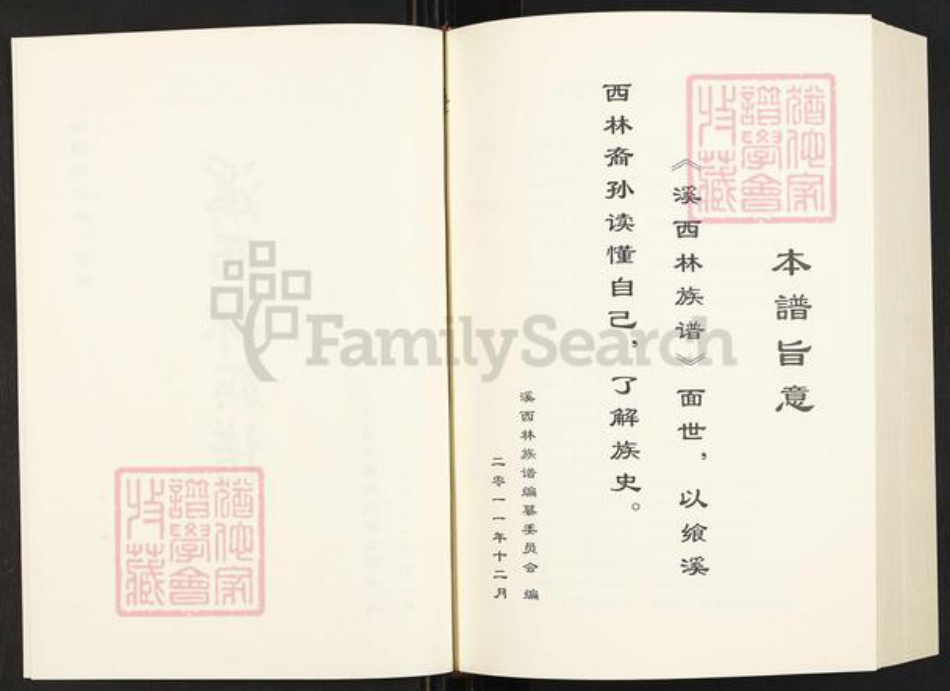 本譜旨意
《溪西林族谱》面世，以飨溪
西林裔孙读懂自己，了解族史。
溪西林族谱编纂委员会 编
二零一一年十二月
猶他家
譜學會
收藏
猶他家
譜學會
收藏
FamilySearch